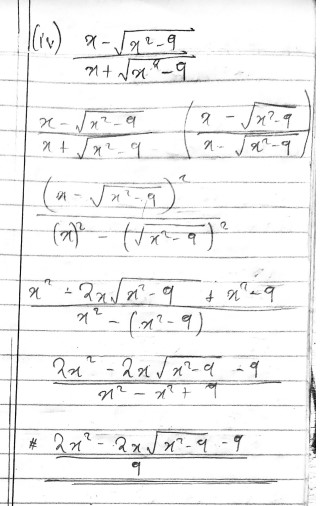 (iv) x - √(x² - 9) / x + √(x² - 9)
x - √(x² - 9) / x + √(x² - 9) (x - √(x² - 9) / x - √(x² - 9))
(x - √(x² - 9))² / (x)² - (√(x² - 9))²
x² - 2x√(x² - 9) + x² - 9 / x² - (x² - 9)
2x² - 2x√(x² - 9) - 9 / x² - x² + 9
# 2x² - 2x√(x² - 9) - 9 / 9